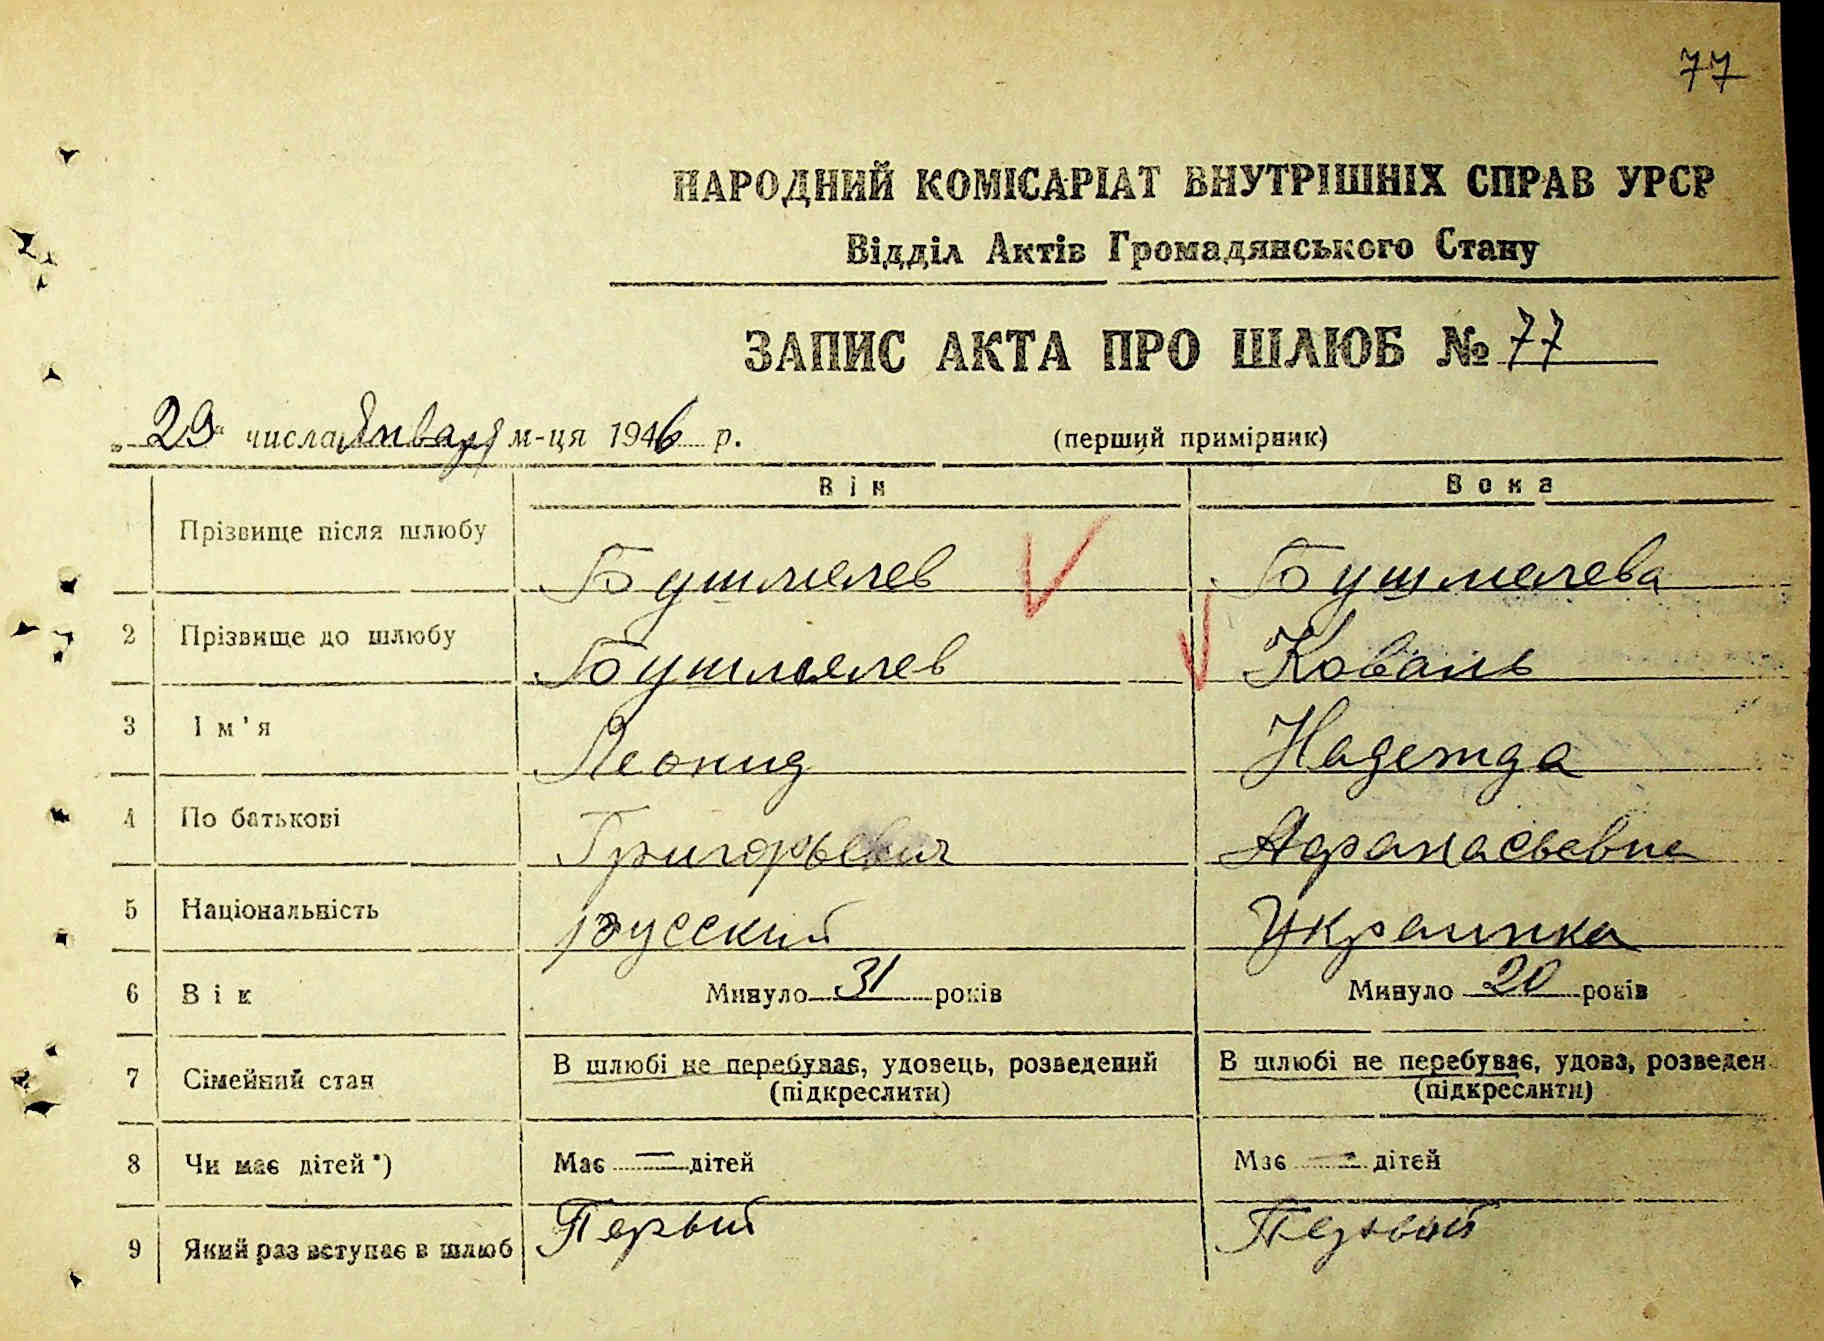 77
НАРОДНИЙ КОМІСАРІАТ ВНУТРІШНІХ СПРАВ УРСР
Відділ Актів Громадянського Стану
ЗАПИС АКТА ПРО ШЛЮБ № 77
„29“ числа Января м-ця 1946 р. (перший примірник)
Він Вона
Прізвище після шлюбу Бушмелев Бушмелева
2 Прізвище до шлюбу Бушмелев Коваль
3 Ім'я Леонид Надежда
4 По батькові Григорьевич Афанасьевна
5 Національність русский Украинка
6 Вік Минуло 31 років Минуло 20 років
7 Сімейний стан В шлюбі не перебуває, удовець, розведений В шлюбі не перебуває, удова, розведен
(підкреслити) (підкреслити)
8 Чи має дітей*) Має — дітей Має — дітей
9 Який раз вступає в шлюб Первый Первый